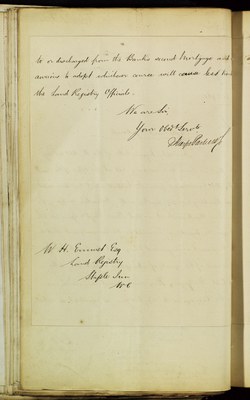 to or discharged from the Bank's second Mortgage and
anxious to adopt whichever course will cause least
the Land Registry Officials.
We are Sir
Your Obed. Servts
W. H. Emmet Esq
Land Registry
Staple Inn
W C